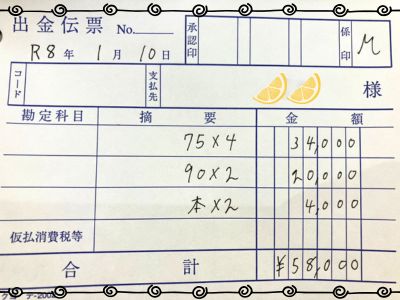 出金伝票 No. 承認印 係印 M
R8年 1月 10日
コード 支払先 様
勘定科目 摘要 金額
75×4 34,000
90×2 20,000
本×2 4,000
仮払消費税等
合計 ¥58,000